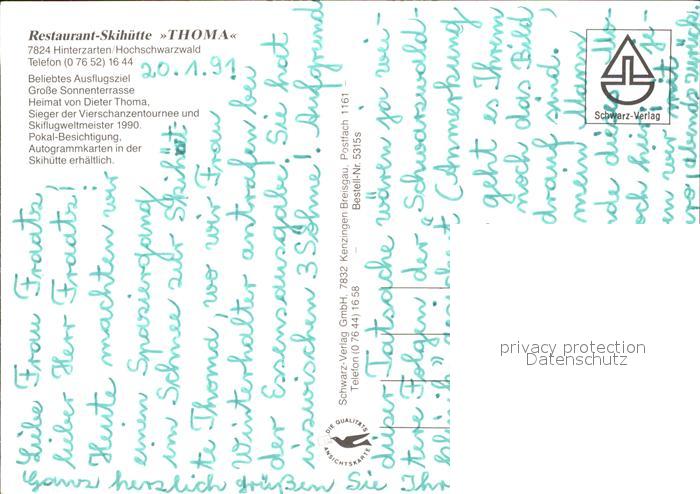 Restaurant-Skihütte »THOMA«
7824 Hinterzarten/Hochschwarzwald
Telefon (0 76 52) 16 44
Beliebtes Ausflugsziel
Große Sonnenterrasse
Heimat von Dieter Thoma,
Sieger der Vierschanzentournee und
Skiflugweltmeister 1990.
Pokal-Besichtigung,
Autogrammkarten in der
Skihütte erhältlich.
20.1.91
Liebe Frau Fraatz,
lieber Herr Fraatz!
Heute machten wir
einen Spaziergang
im Schnee zur Skihüt
te Thoma, wo wir Frau
Winterhalter antrafen bei
der Essensausgabe. Sie hat
inzwischen 3 Söhne! Aufgrund
Schwarz-Verlag GmbH, 7832 Kenzingen Breisgau, Postfach 1161 –
Telefon (0 76 44) 16 58 – Bestell-Nr. 5315s
DIE QUALITÄTS
ANSICHTSKARTE
dieser Tatsache wären ja wei-
tere Folgen der Schwarzwald-
(Anmerkung
geht es Ihrem
noch das Bild,
drauf sind.
mein Mann
Ganz herzlich grüßen Sie Ihr
Schwarz-Verlag
privacy protection
Datenschutz